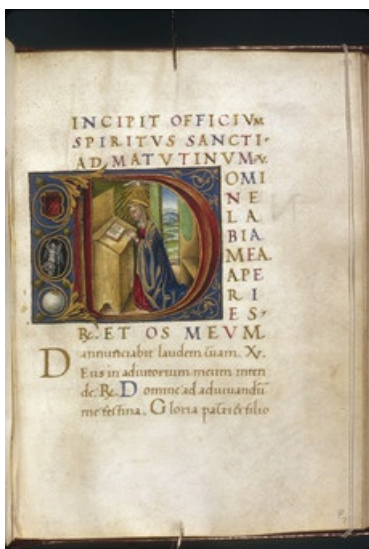 INCIPIT OFFICIVM
SPIRITVS SANCTI·
AD MATVTINVM·V.
D OMI
NE
LA
BIA
MEA
APE
RI
ES·
R. ET OS MEVM.
annunciabit laudem tuam. V.
D Eus in adiutorium meum inten
de. R. Domine ad adiuuandū
me festina. Gloria patri & filio